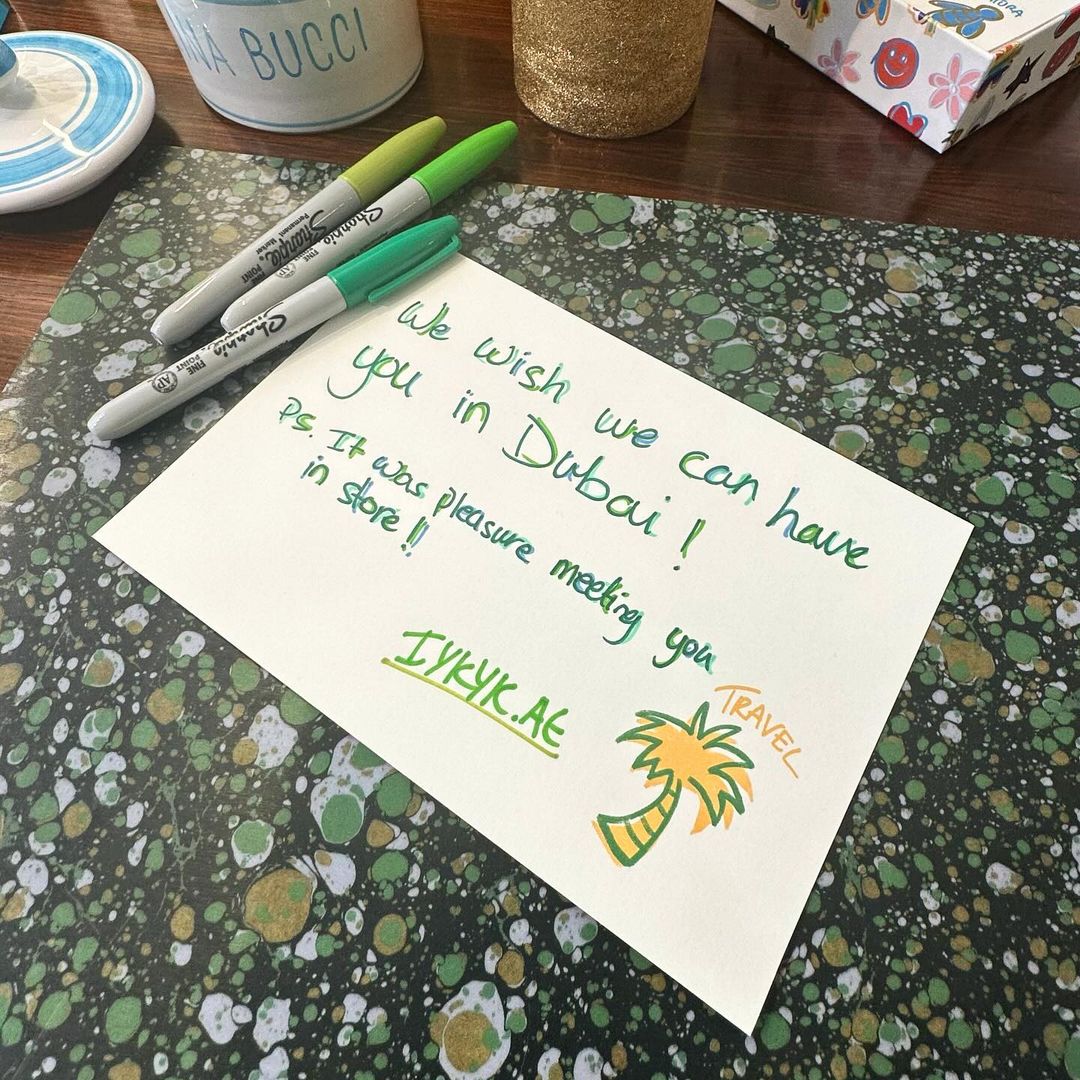 NA BUCCI
Sharpie
Permanent Marker
FINE POINT
AP
Sharpie
FINE
AP
Sharpie
FINE
POINT
AP
We wish we can have
you in Dubai !
Ps. It was pleasure meeting you
in store !!
IYKYK.AE
TRAVEL